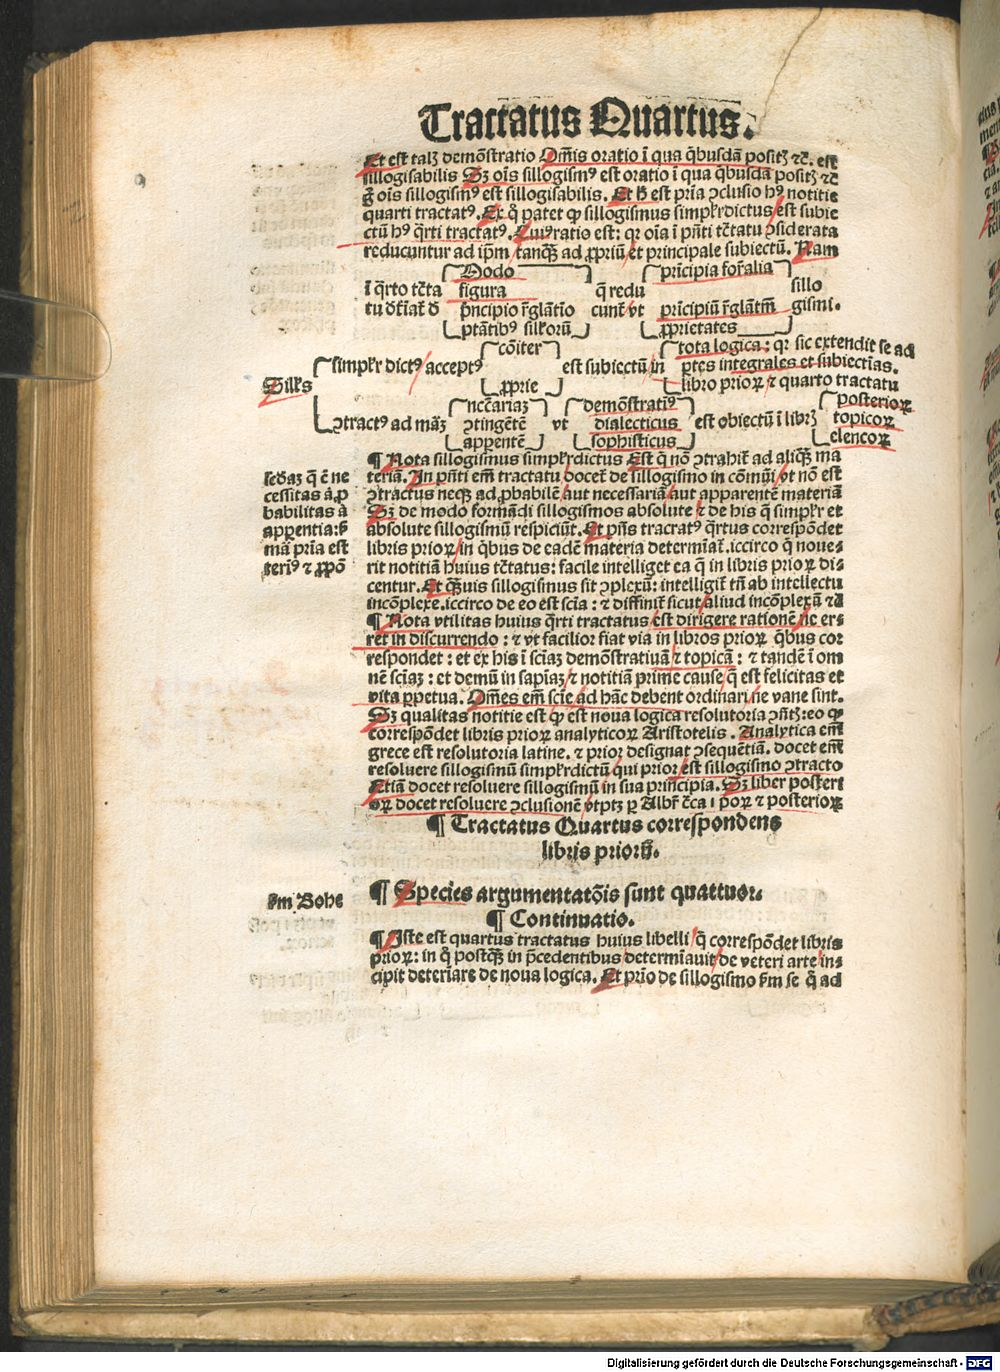 Tractatus Quartus.
Et est talꝫ demõstratio Om̃is oratio ĩ qua q̃busdã positꝫ ⁊c̃. est
sillogisabilis Sꝫ oĩs sillogismꝰ est oratio ĩ qua q̃busdã positꝫ ⁊c̃
g̃ oĩs sillogismꝰ est sillogisabilis. Et h̃ est prĩa ↄclusio hꝰ notitie
quarti tractatꝰ. Ex q̃ patet ꝙ sillogismus simpl̃r dictus est subie
ctũ hꝰ q̃rti tractatꝰ. Cuiꝰ ratio est: qꝛ oĩa ĩ pñti tc̃tatu ↄsiderata
reducuntur ad ip̃m tanq̃ꝫ ad ꝓpriũ et principale subiectũ. Nam
ĩ q̃rto tc̃ta
tu dt̃iat̃ d̃
Modo
figura
p̃ncipio r̃glãtio
ptãtibꝰ silr̃orũ
q̃ redu
cunt̃ vt
prĩcipia for̃alia
prĩcipiũ r̃glãtm̃
ꝓprietates
sillo
gismi.
Sill̃s
simpl̃r dictꝰ acceptꝰ
cõiter
ꝓprie
est subiectũ in
tota logica: qꝛ sic extendit se ad
ptes integrales et subiectiãs.
libro prioꝝ ⁊ quarto tractatu
ↄtractꝰ ad mãꝫ
ncc̃ariaꝫ
ↄtingẽtẽ
apparentẽ
vt
demõstratiꝰ
dialecticus
sophisticus
est obiectũ ĩ librꝫ
posterioꝝ
topicoꝝ
elencoꝝ
¶ Nota sillogismus simpl̃r dictus Est q̃ nõ ↄtrahit̃ ad aliq̃ꝫ ma
teriã. In pñti em̃ tractatu docet̃ de sillogismo in cõmũi vt nõ est
ↄtractus neqꝫ ad ꝓbabilẽ aut necessariã aut apparentẽ materiã
Sꝫ de modo formãdi sillogismos absolute ⁊ de his q̃ simpl̃r et
absolute sillogismũ respiciũt. Et pñs tractatꝰ q̃rtus correspõdet
libris prioꝝ in q̃bus de eadẽ materia determiat̃. iccirco q̃ noue-
rit notitiã huius tc̃tatus: facile intelliget ea q̃ in libris prioꝝ di-
centur. Et q̃ꝫuis sillogismus sit ↄplexũ: intelligit̃ tñ ab intellectu
incõplexe. iccirco de eo est scĩa: ⁊ diffinit̃ sicut aliud incõplexũ ⁊c̃
¶ Nota vtilitas huius q̃rti tractatus est dirigere rationẽ ne er-
ret in discurrendo: ⁊ vt facilior fiat via in libros prioꝝ q̃bus cor
respondet: et ex his ĩ scĩaꝫ demõstratiuã ⁊ topicã: ⁊ tandẽ ĩ om
nẽ scĩaꝫ: et demũ in sapĩaꝫ ⁊ notitiã prime cause q̃ est felicitas et
vita ꝑpetua. Om̃es em̃ scĩe ad hãc debent ordinari ne vane sint.
Sꝫ qualitas notitie est ꝙ est noua logica resolutoria ↄñtꝫ: eo ꝙ
correspõdet libris prioꝝ analyticoꝝ Aristotelis. Analytica em̃
grece est resolutoria latine. ⁊ prior designat ↄsequẽtiã. docet em̃
resoluere sillogismũ simpl̃rdictũ qui prior est sillogismo ↄtracto
Etiã docet resoluere sillogismũ in sua principia. Sꝫ liber posteri
oꝝ docet resoluere ↄclusionẽ vt ptꝫ ꝑ Albr̃ tc̃a i poꝝ ⁊ posterioꝝ
sed'aꝫ q̃ ẽ ne
cessitas à ꝓ
babilitas à
apparentia: h̃
mã prĩa est
teriꝰ ⁊ ꝓpõ
¶ Tractatus Quartus correspondens
libris priorũ.
¶ Species argumentatõis sunt quattuor.
¶ Continuatio.
s̃m Bohe
¶ Iste est quartus tractatus huius libelli q̃ correspõdet libris
prioꝝ: in q̃ postq̃ꝫ in p̃cedentibus determiauit de veteri arte in-
cipit determiare de noua logica. Et prĩo de sillogismo s̃m se q̃ ad
Digitalisierung gefördert durch die Deutsche Forschungsgemeinschaft - DFG